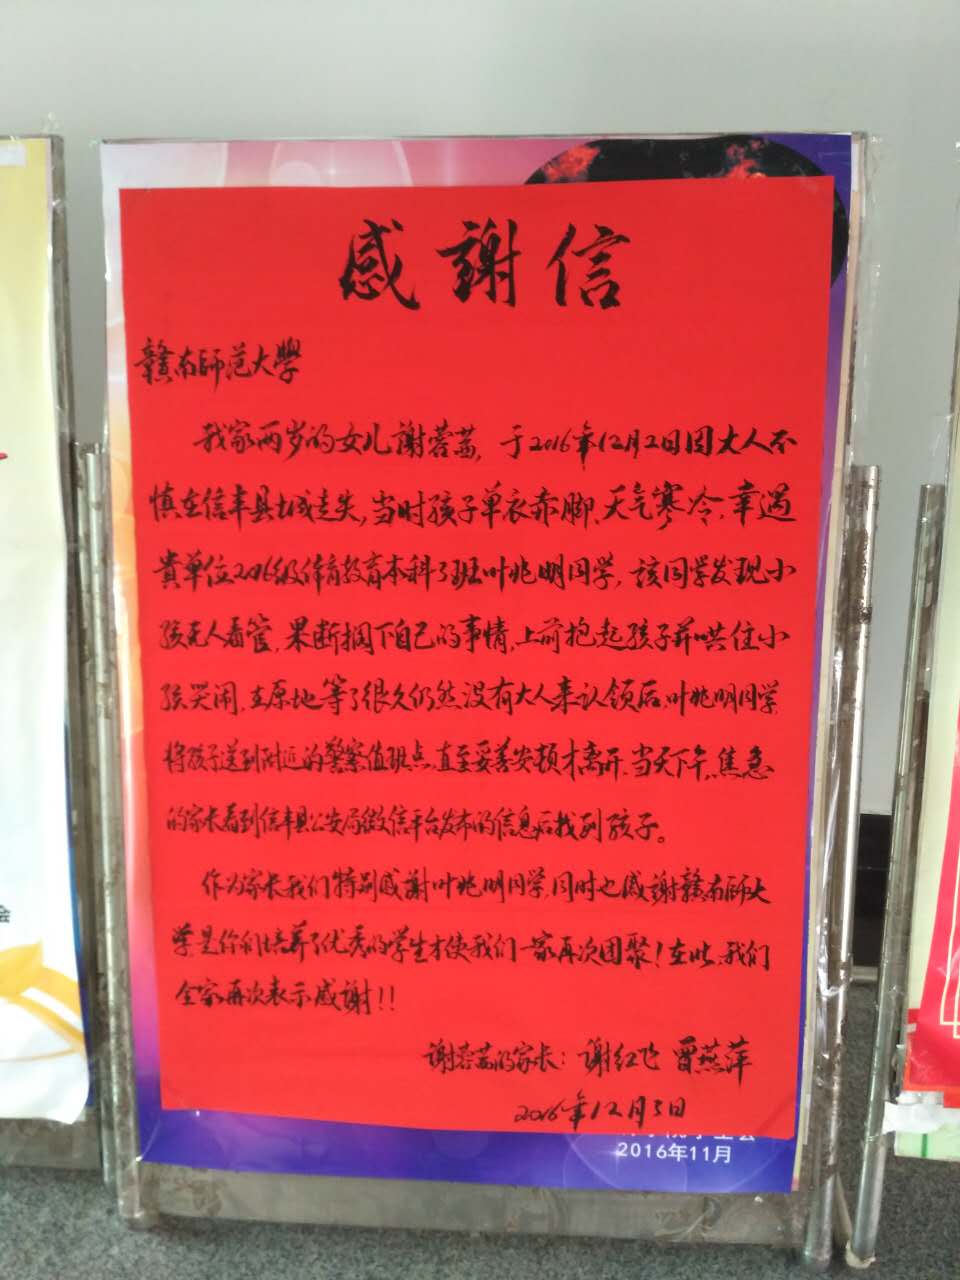 感謝信
赣南师范大學
我家两岁的女儿谢蓉菡，于2016年12月2日因大人不
慎在信丰县城走失，当时孩子单衣赤脚、天气寒冷，幸遇
貴单位2016级体育教育本科3班叶兆明同学，该同学发现小
孩无人看管，果断搁下自己的事情，上前抱起孩子并哄住小
孩哭闹，在原地等了很久仍然没有大人来认领后，叶兆明同学
将孩子送到附近的警察值班点，直至妥善安顿才离开，当天下午，焦急
的家长看到信丰县公安局微信平台发布的信息后找到孩子。
作为家长我们特别感谢叶兆明同学，同时也感謝赣南师大
学是你们培养了优秀的学生才使我们一家再次团聚！在此，我们
全家再次表示感谢！！
谢蓉菡的家长：谢红飞 曾燕萍
2016年12月5日
学生会
2016年11月
会